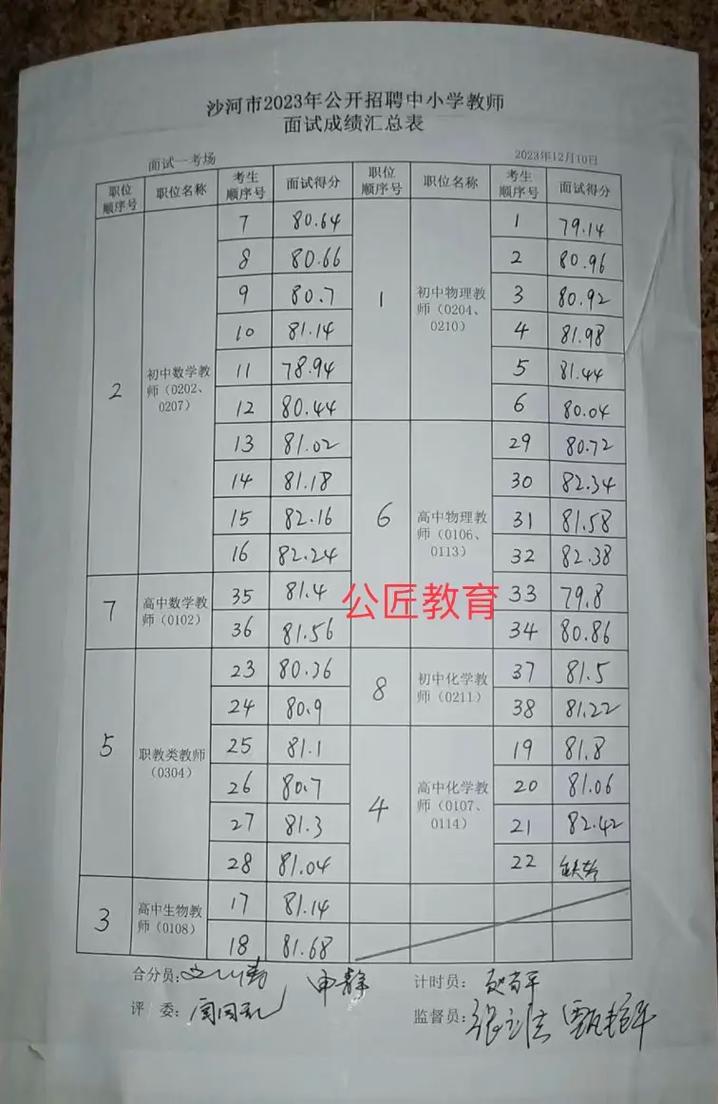 沙河市2023年公开招聘中小学教师
面试成绩汇总表
面试一考场 2023年12月10日
职位顺序号 职位名称 考生顺序号 面试得分 职位顺序号 职位名称 考生顺序号 面试得分
2 初中数学教师（0202、0207） 7 80.64 1 初中物理教师（0204、0210） 1 79.14
8 80.66 2 80.96
9 80.7 3 80.92
10 81.14 4 81.98
11 78.94 5 81.44
12 80.44 6 80.04
13 81.02 6 高中物理教师（0106、0113） 29 80.72
14 81.18 30 82.34
15 82.16 31 81.58
16 82.24 32 82.38
7 高中数学教师（0102） 35 81.4 33 79.8
公匠教育
36 81.56 34 80.86
5 职教类教师（0304） 23 80.36 8 初中化学教师（0211） 37 81.5
24 80.9 38 81.22
25 81.1 4 高中化学教师（0107、0114） 19 81.8
26 80.7 20 81.06
27 81.3 21 82.42
28 81.04 22 缺考
3 高中生物教师（0108） 17 81.14
18 81.68
合分员: 申静 计时员:
评 委: 监督员: